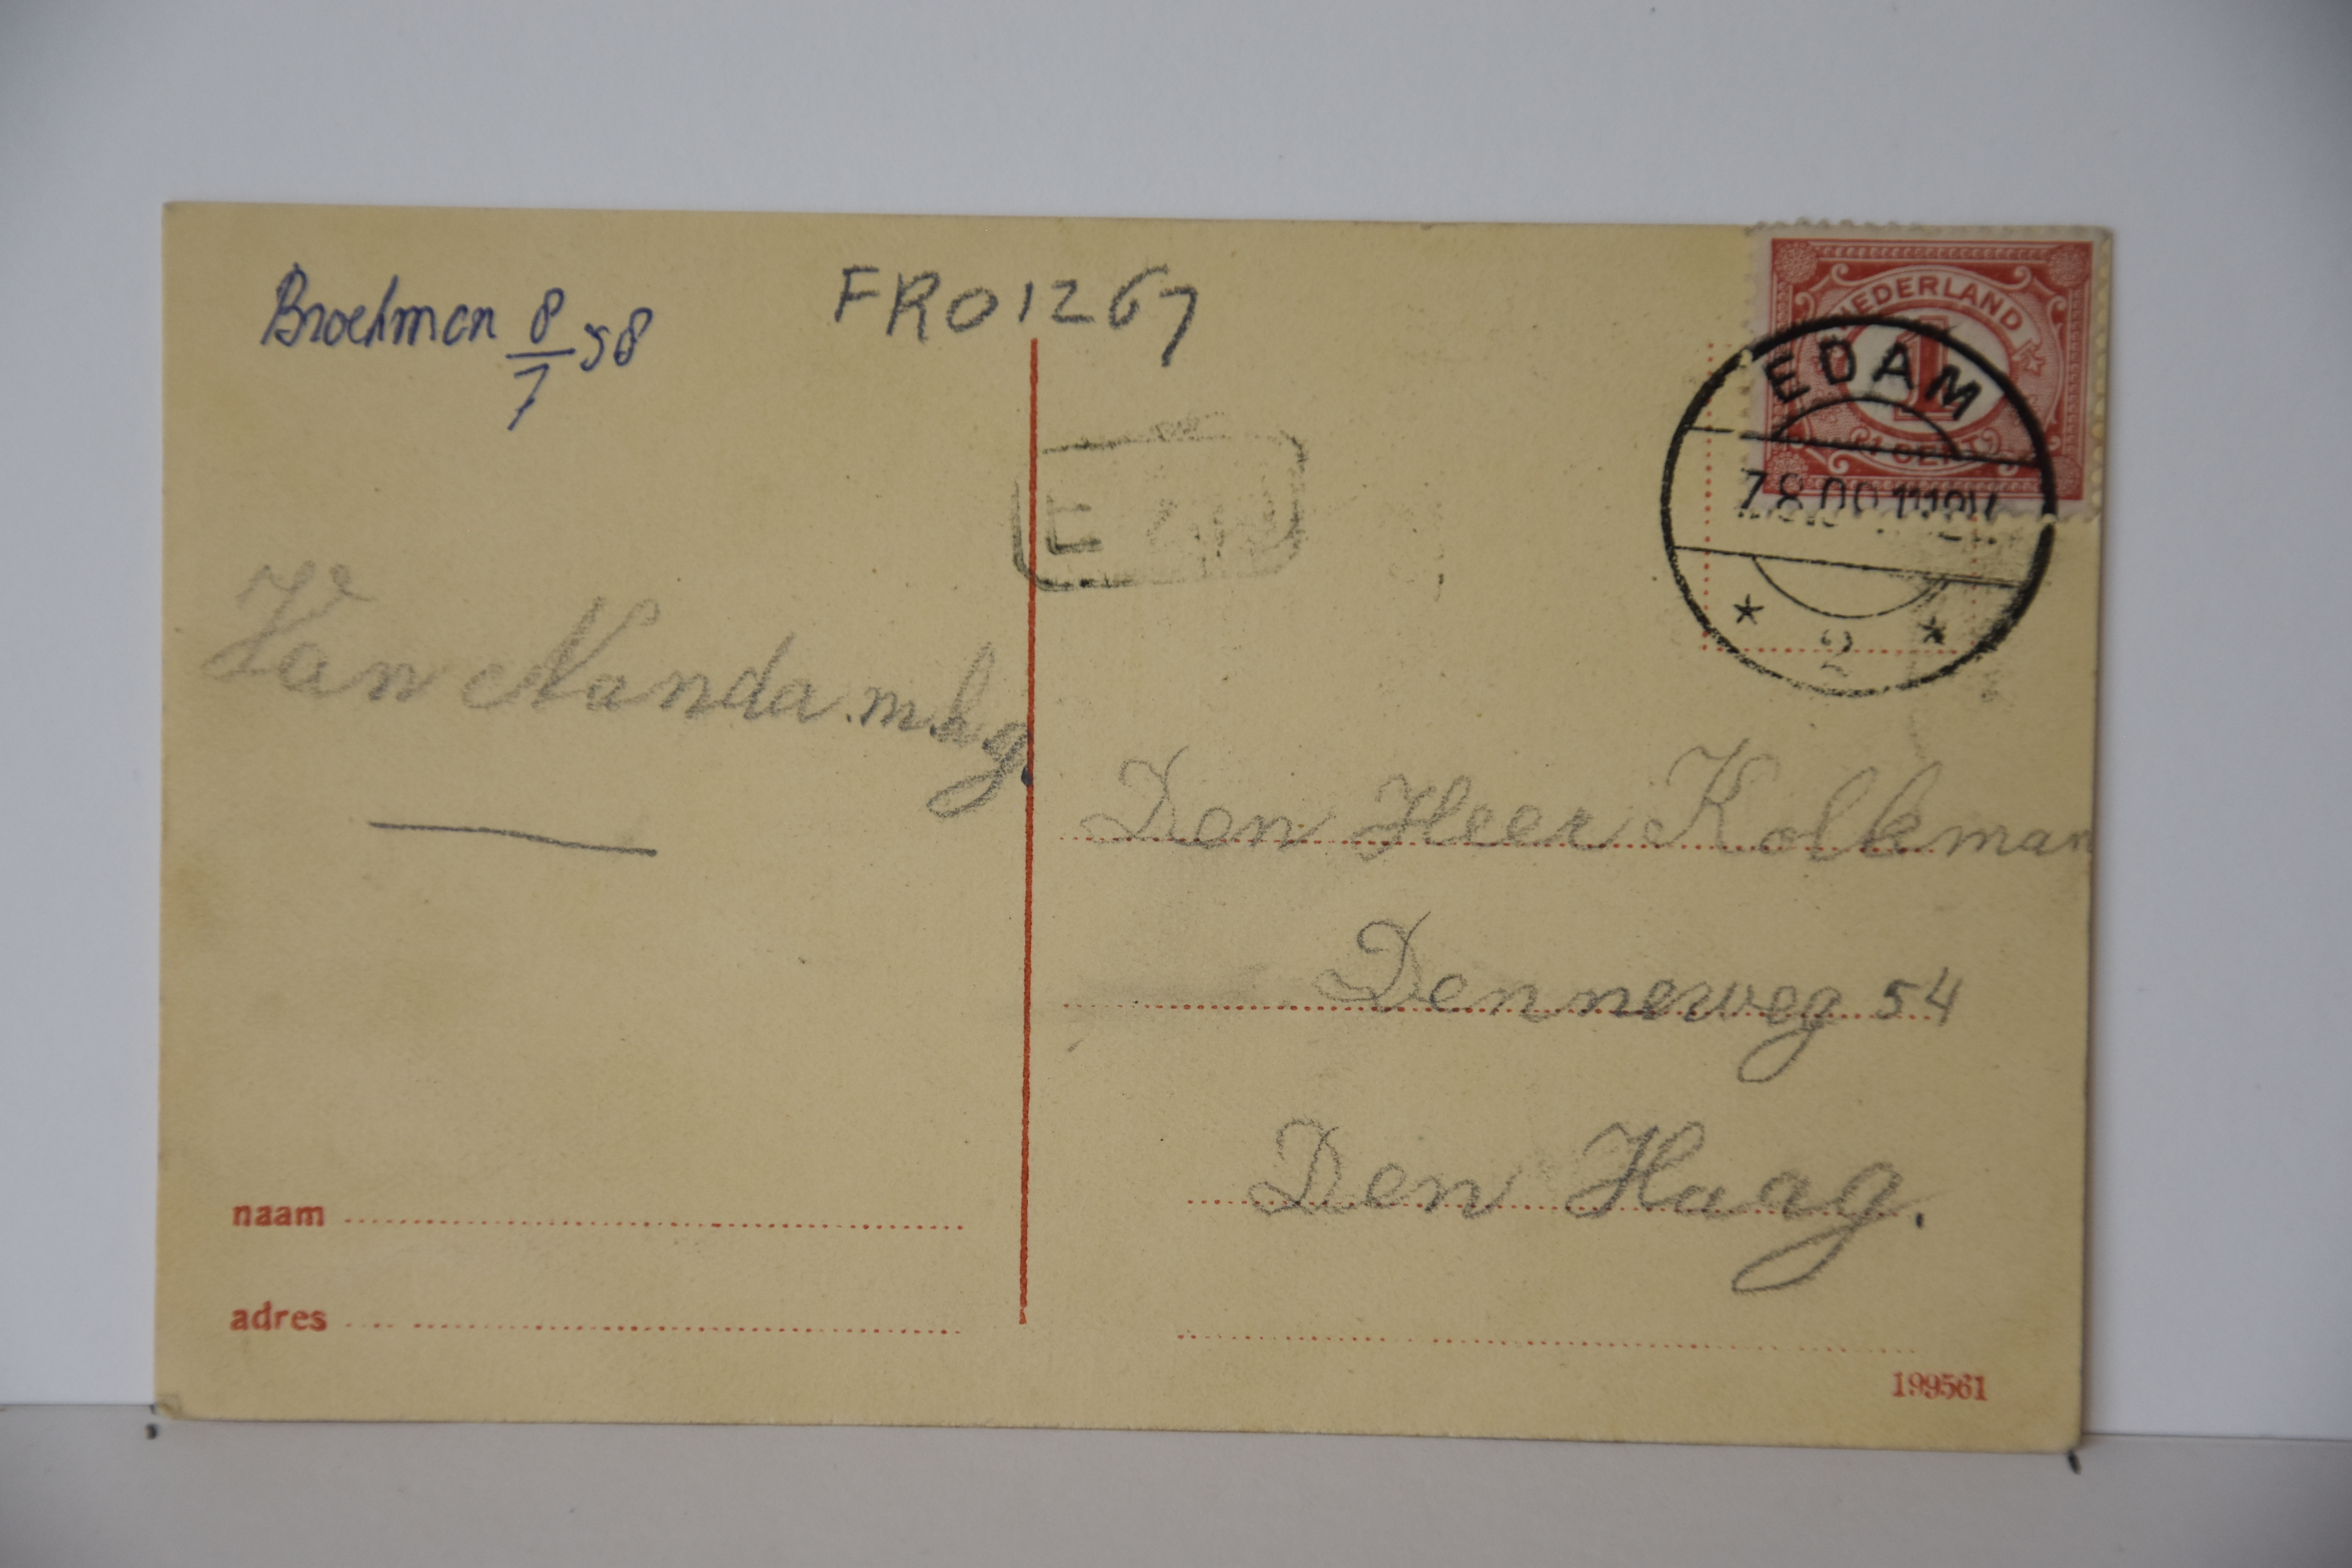 Broekman 8/7 58
FRO1267
NEDERLAND
1
1 CENT
EDAM
7.8.09 11-12V.
2
Van Nanda m.h.g.
Den Heer Kolkman
Denneweg 54
Den Haag.
naam
adres
199561